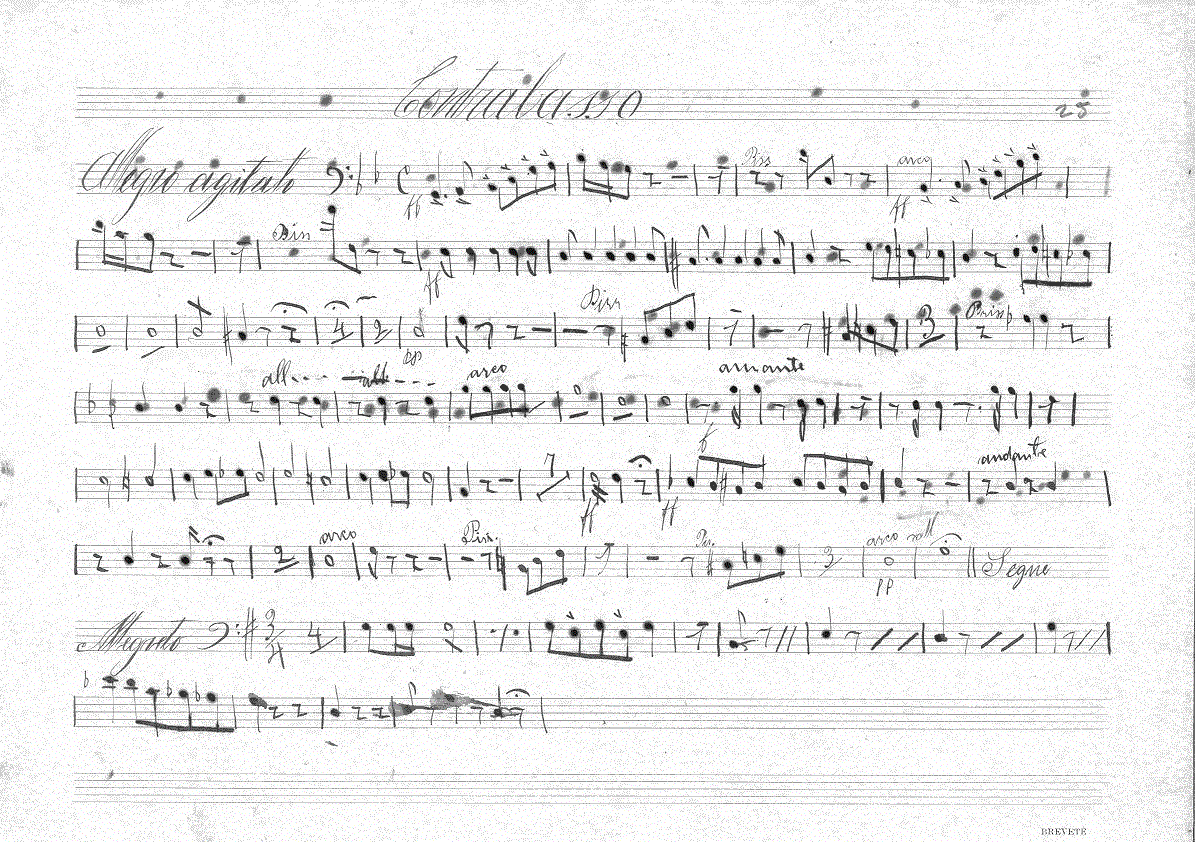 Contrabasso
25
Allegro agitato C ff Piss arco ff
Piss ff
4 2 pp Piss 3
all.... all.... arco amante f
7 ff ff andante
2 arco Piss. 2 arco roll pp Segue
Allegreto 3/4 4
BREVETE